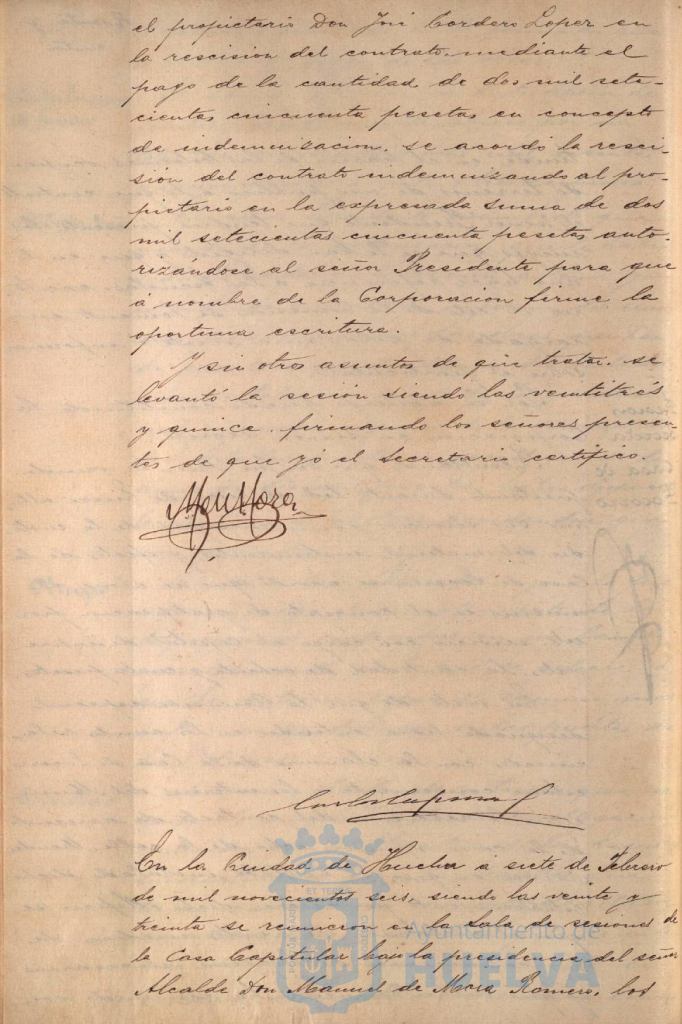 el propietario Don José Cordero Lopez en
la rescision del contrato, mediante el
pago de la cantidad de dos mil sete-
cientas cincuenta pesetas en concepto
de indemnizacion. se acordó la resci-
sión del contrato indemnizando al pro-
pietario en la expresada suma de dos
mil setecientas cincuenta pesetas auto-
rizándose al señor Presidente para que
á nombre de la Corporacion firme la
oportuna escritura.
Y sin otros asuntos de que tratar. se
levantó la sesión siendo las veintitrés
y quince. firmando los señores presen-
tes de que yó el Secretario certifico.
En la Ciudad de Huelva á siete de Febrero
de mil novecientos seis, siendo las veinte y
treinta se reunieron en la Sala de sesiones de
la Casa Capitular bajo la presidencia del señor
Alcalde Don Manuel de Mora Romero, los
Ayuntamiento de
HUELVA